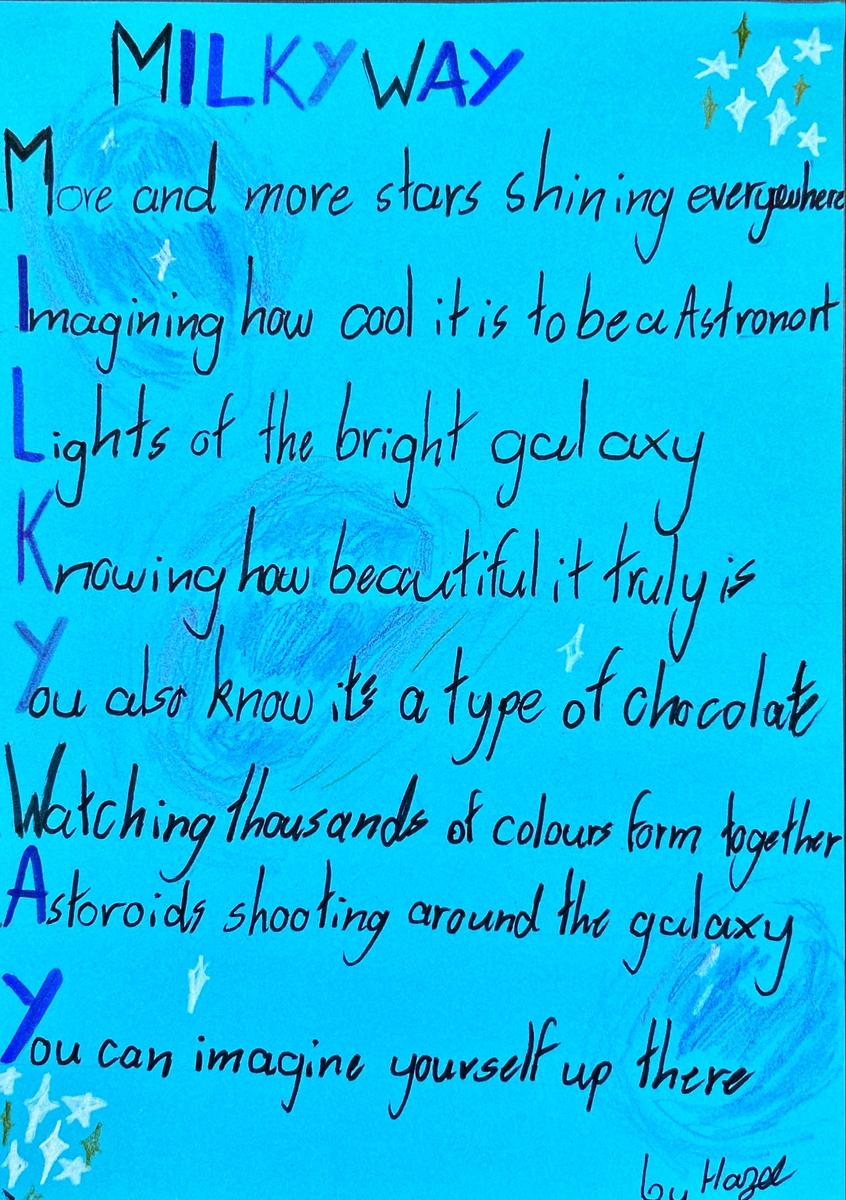 MILKYWAY
More and more stars shining everywhere
Imagining how cool it is to be a Astronort
Lights of the bright galaxy
Knowing how beautiful it truly is
You also know it's a type of chocolate
Watching thousands of colours form together
Astoroids shooting around the galaxy
You can imagine yourself up there
by Hazel